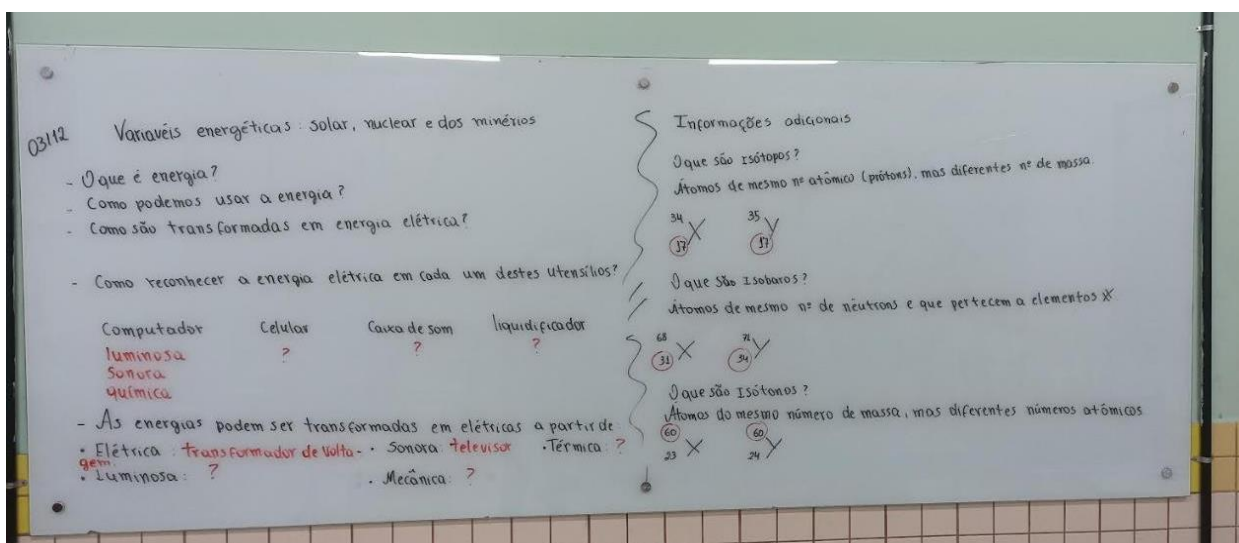 03/12
Variavéis energéticas: solar, nuclear e dos minérios
- O que é energia?
- Como podemos usar a energia?
- Como são transformadas em energia elétrica?
- Como reconhecer a energia elétrica em cada um destes utensílios?
Computador Celular Caixa de som liquidificador
luminosa ? ? ?
Sonora
química
- As energias podem ser transformadas em elétricas a partir de
• Elétrica: transformador de volta- • Sonora: televisor • Térmica: ?
gem.
• Luminosa: ? • Mecânica: ?
Informações adicionais
O que são Isótopos?
Átomos de mesmo nº atômico (prótons), mas diferentes nº de massa.
34 35
17 X 17 Y
O que são Isobaros?
Átomos de mesmo nº de nêutrons e que pertecem a elementos ≠
68 71
31 X 34 Y
O que são Isótonos?
Átomos do mesmo número de massa, mas diferentes números atômicos
60 60
23 X 24 Y